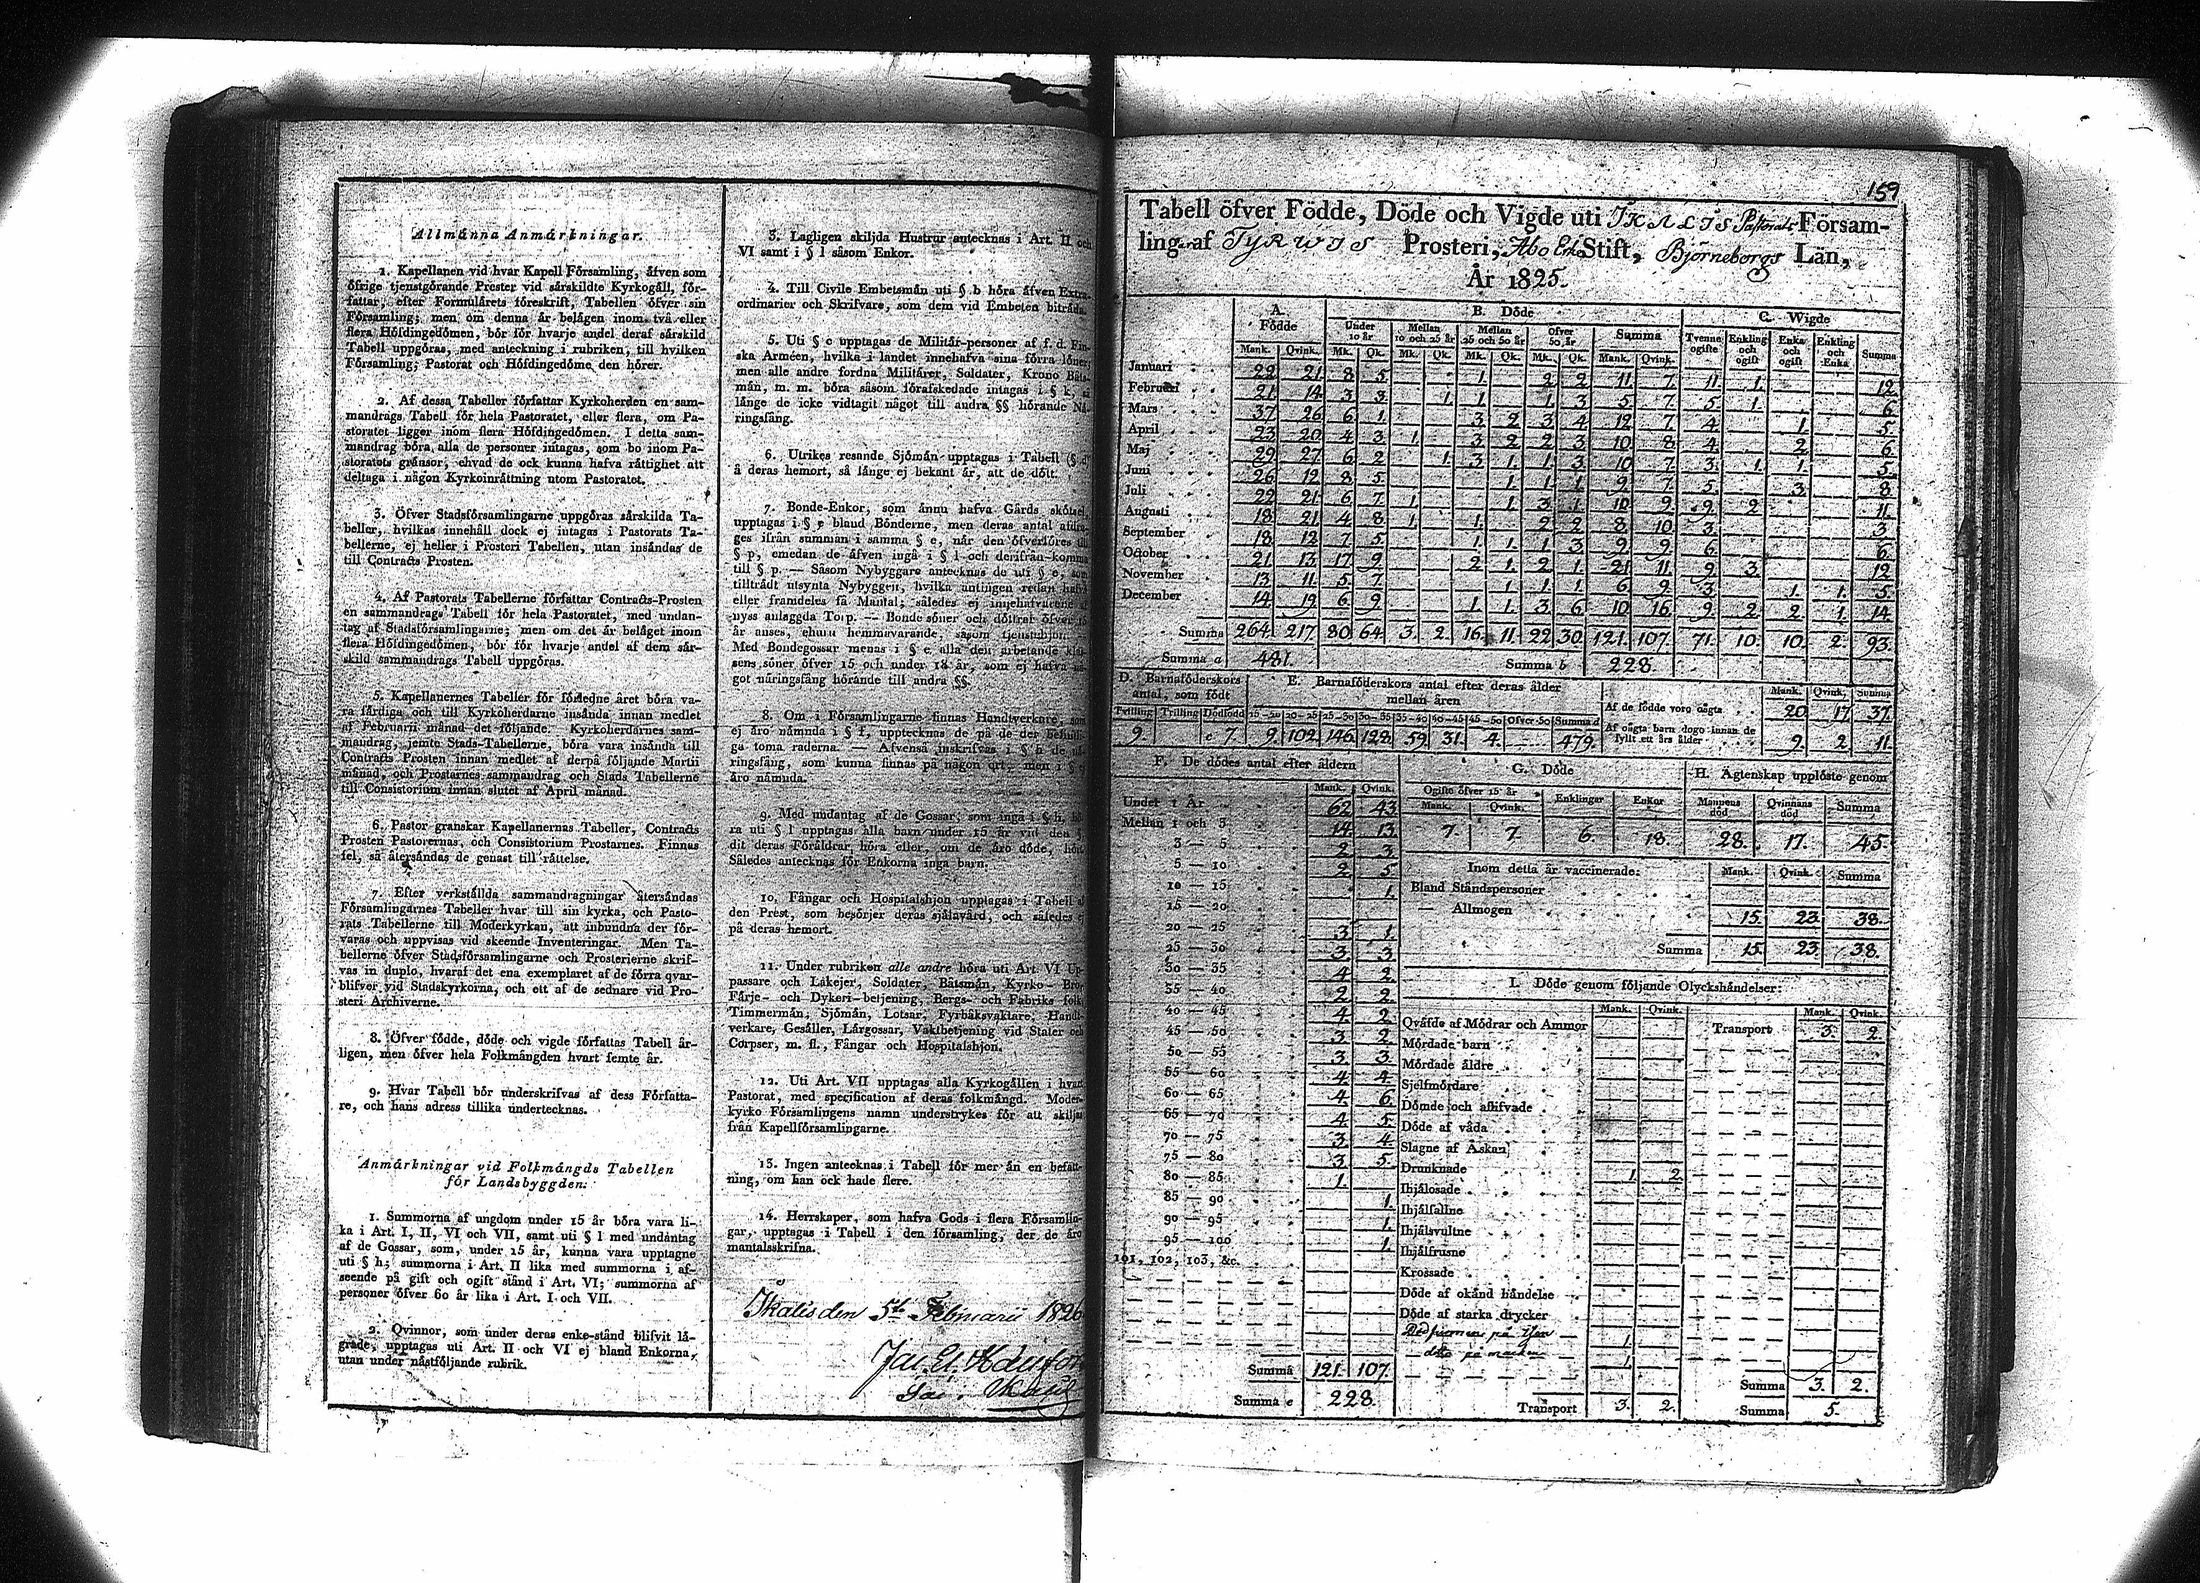 Allmänna Anmärkningar.
1. Kapellanen vid hvar Kapell Församling, åfven som
öfrige tjenstgörande Prester vid särskildte Kyrkogåll, för-
fattar, efter Formulårets föreskrift, Tabellen öfver sin
Församling; men om denna är belågen inom två eller
flera Höfdingedömen, bör för hvarje andel deraf särskild
Tabell uppgöras, med anteckning i rubriken, till hvilken
Församling, Pastorat och Höfdingedöme den hörer.
2. Af dessa Tabeller författar Kyrkoherden en sam-
mandrags Tabell för hela Pastoratet, eller flera, om Pa-
storatet ligger inom flera Höfdingedömen. I detta sam-
mandrag böra alla de personer intagas, som bo inom Pa-
storatets gränsor, ehvad de ock kunna hafva råttighet att
deltaga i någon Kyrkoinråttning utom Pastoratet.
3. Öfver Stadsförsamlingarne uppgöras särskilda Ta-
beller, hvilkas innehåll dock ej intages i Pastorats Ta-
bellerne, ej heller i Prosteri Tabellen, utan insändas de
till Contracts Prosten.
4. Af Pastorats Tabellerne författar Contracts-Prosten
en sammandrags Tabell för hela Pastoratet, med undan-
tag af Stadsförsamlingarne; men om det är beläget inom
flera Höfdingedömen, bör för hvarje andel af dem sär-
skild sammandrags Tabell uppgöras.
5. Kapellanernes Tabeller för förledne året böra va-
ra färdiga och till Kyrkoherdarne insända innan medlet
af Februarii månad det följande. Kyrkoherdarnes sam-
mandrag, jemte Stads-Tabellerne, böra vara insända till
Contracts Prosten innan medlet af derpå följande Martii
månad, och Prostarnes sammandrag och Stads Tabellerne
till Consistorium innan slutet af April månad.
6. Pastor granskar Kapellanernas Tabeller, Contracts
Prosten Pastorernas, och Consistorium Prostarnes. Finnas
fel, så återsåndas de genast till råttelse.
7. Efter verkställda sammandragningar återsåndas
Församlingarnes Tabeller hvar till sin kyrka, och Pasto-
rats Tabellerne till Moderkyrkan, att inbundna der för-
varas och uppvisas vid skeende Inventeringar. Men Ta-
bellerne öfver Stadsförsamlingarne och Prosterierne skrif-
vas in duplo, hvaraf det ena exemplaret af de förra qvar-
blifver vid Stadskyrkorna, och ett af de sednare vid Pro-
steri Archiverne.
8. Öfver födde, döde och vigde författas Tabell år-
ligen, men öfver hela Folkmängden hvart femte år.
9. Hvar Tabell bör underskrifvas af dess Författa-
re, och hans adress tillika undertecknas.
Anmärkningar vid Folkmängds Tabellen
för Landsbyggden:
1. Summorna af ungdom under 15 år böra vara li-
ka i Art. I, II, VI och VII, samt uti § l med undantag
af de Gossar, som, under 15 år, kunna vara upptagne
uti § h; summorna i Art. II lika med summorna i af-
seende på gift och ogift stånd i Art. VI; summorna af
personer öfver 60 år lika i Art. I och VII.
2. Qvinnor, som under deras enke-stånd blifvit lå-
grade, upptagas uti Art. II och VI ej bland Enkorna,
utan under nästföljande rubrik.
3. Lagligen skiljda Hustrur antecknas i Art. II och
VI samt i § l såsom Enkor.
4. Till Civile Embetsmän uti § b höra åfven Extra-
ordinarier och Skrifvare, som dem vid Embeten bitråda.
5. Uti § c upptagas de Militår-personer af f. d. Fin-
ska Arméen, hvilka i landet innehafva sina förra löner;
men alle andre fordna Militårer, Soldater, Krono Båts-
mån, m. m. böra såsom förafskedade intagas i § k, så
långe de icke vidtagit något till andra §§ hörande Nå-
ringsfång.
6. Utrikes resande Sjömån upptagas i Tabell (§ d)
å deras hemort, så länge ej bekant är, att de dött.
7. Bonde-Enkor, som ånnu hafva Gårds skötsel
upptagas i § e bland Bönderne, men deras antal afdra-
ges ifrån summan i samma § e, når den öfverföres till
§ p, emedan de åfven ingå i § l och derifrån komma
till § p. — Såsom Nybyggare antecknas de uti § e, som
tilltrådt utsynta Nybyggen, hvilka antingen redan hafva
eller framdeles få Mantal; således ej innehafvarene af
nyss anlaggda Torp. — Bonde söner och döttrar öfver 15
år anses, ehuru hemmavarande, såsom tjenstehjon. —
Med Bondegossar menas i § e alla den arbetande klas-
sens söner öfver 15 och under 18 år, som ej hafva nå-
got näringsfång hörande till andra §§.
8. Om i Församlingarne finnas Handtverkare, som
ej åro nåmnda i § f, upptecknas de på de der befintli-
ga toma raderna. — Afvensä inskrifvas i § h de nå-
ringsfång, som kunna finnas på någon ort, men i § h
åro nämuda.
9. Med undantag af de Gossar, som ingå i § h, bö-
ra uti § l upptagas alla barn under 15 år vid den §,
dit deras Föråldrar höra eller, om de åro döde, hört.
Således antecknas för Enkorna inga barn.
10. Fångar och Hospitalshjon upptagas i Tabell af
den Prest, som besörjer deras själavård, och således ej
på deras hemort.
11. Under rubriken alle andre höra uti Art. VI Up-
passare och Lakejer, Soldater, Båtsmån, Kyrko- Bro-
Färje- och Dykeri-betjening, Bergs- och Fabriks folk,
Timmermån, Sjömån, Lotsar, Fyrbåksvaktare, Handt-
verkare, Gesåller, Lärgossar, Vaktbetjening vid Stater och
Corpser, m. fl., Fångar och Hospitalshjon.
12. Uti Art. VII upptagas alla Kyrkogållen i hvart
Pastorat, med specification af deras folkmängd. Moder-
kyrko Församlingens namn understrykes för att skiljas
från Kapellförsamlingarne.
13. Ingen antecknas i Tabell för mer än en befatt-
ning, om han ock hade flere.
14. Herrskaper, som hafva Gods i flera Församlin-
gar, upptagas i Tabell i den församling, der de åro
mantalsskrifna.
Ikalis den 5te Februarii 1826
159
Tabell öfver Födde, Döde och Vigde uti IKALIS Pastorats Försam-
ling af TYRWIS Prosteri, Åbo Erke Stift, Björneborgs Län,
År 1825.
A. Födde B. Döde C. Wigde
Under 10 år Mellan 10 och 25 år Mellan 25 och 50 år Öfver 50 år Summa Tvenne ogifte Enkling och ogift Enka och ogift Enkling och Enka Summa
Mank. Qvink. Mk. Qk. Mk. Qk. Mk. Qk. Mk. Qk. Mank. Qvink.
Januari 22 21 8 5 1 2 2 11 7 11 1 12
Februari 21 14 3 3 1 1 1 3 5 7 5 1 6
Mars 37 26 6 1 3 2 3 4 12 7 4 1 5
April 23 20 4 3 1 3 2 2 3 10 8 4 2 6
Maj 29 27 6 2 1 3 1 1 3 10 7 3 1 1 5
Juni 26 12 8 5 1 1 1 9 7 5 3 8
Juli 22 21 6 7 1 1 3 1 10 9 9 2 11
Augusti 18 21 4 8 1 1 2 2 8 10 3 3
September 18 12 7 5 1 1 1 3 9 9 6 6
October 21 13 17 9 2 1 2 1 21 11 9 3 12
November 13 11 5 7 1 1 1 6 9 3 1 1 5
December 14 19 6 9 1 1 3 6 10 16 9 2 2 1 14
Summa 264 217 80 64 3 2 16 11 22 30 121 107 71 10 10 2 93
Summa a 481. Summa b 228.
D. Barnaföderskors antal, som födt
Tvilling Trilling Dödfödd
9. c 7.
E. Barnaföderskors antal efter deras ålder mellan åren
15-20 20-25 25-30 30-35 35-40 40-45 45-50 Öfver 50 Summa d
9. 102. 146. 128. 59. 31. 4. 479.
Mank. Qvink. Summa
Af de födde voro oägta 20 17 37.
Af oägta barn dogo innan de fyllt ett års ålder 9. 2 11.
F. De dödes antal efter åldern
Mank. Qvink.
Under 1 År 62 43
Mellan 1 och 3 14 13
3 — 5 2 3
5 — 10 2 5
10 — 15 1.
15 — 20
20 — 25 3 1
25 — 30 3 3
30 — 35 4 2
35 — 40 2 2
40 — 45 4 2
45 — 50 3 2
50 — 55 3 3
55 — 60 4 4
60 — 65 4 6
65 — 70 4 5
70 — 75 3 4
75 — 80 3 5
80 — 85 1.
85 — 90 1.
90 — 95 1.
95 — 100 1.
101, 102, 103, &c.
Summa 121. 107.
Summa e 228.
G. Döde
Ogifte öfver 15 år Enklingar Enkor
Mank. Qvink.
7. 7. 6. 18.
H. Ägtenskap upplöste genom
Mannens död Qvinnans död Summa
28. 17. 45.
Inom detta år vaccinerade: Mank. Qvink. Summa
Bland Ståndspersoner
— Allmogen 15. 23 38.
Summa 15. 23. 38.
I. Döde genom följande Olyckshändelser:
Mank. Qvink.
Qväfde af Mödrar och Ammor
Mördade barn
Mördade äldre
Sjelfmördare
Dömde och aflifvade
Döde af våda
Slagne af Åskan
Drunknade 1. 2.
Ihjälosade
Ihjälfallne
Ihjälsvultne
Ihjälfrusne
Krossade
Döde af okänd händelse
Döde af starka drycker
på isen 1.
1.
Transport 3. 2.
Mank. Qvink.
Transport 3. 2.
Summa 3. 2.
Summa 5.